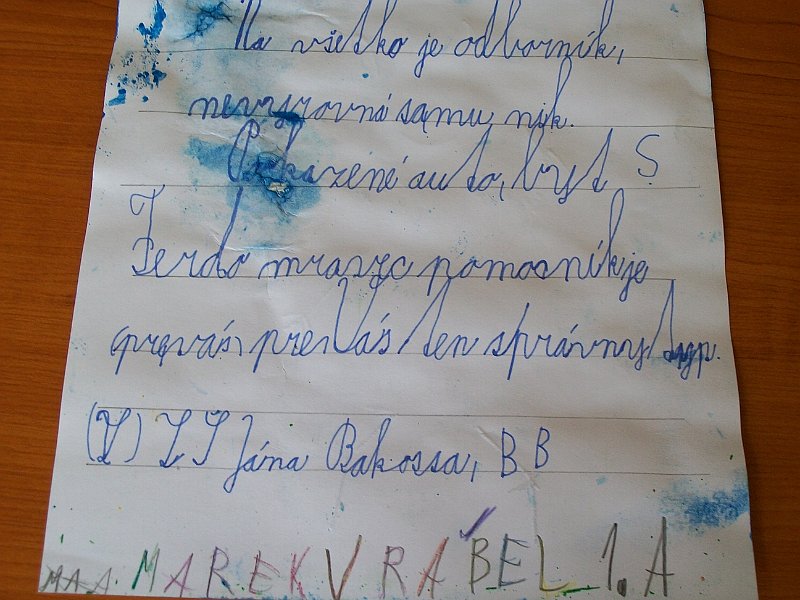 Na všetko je odborník,
nevyrovná sa mu nik.
Pokazené auto, byt S
Ferdo mravec pomocník je
pre vás ten správny typ.
(Y) ZŠ Jána Bakossa, BB
MAA MAREK VRÁBEL 1.A